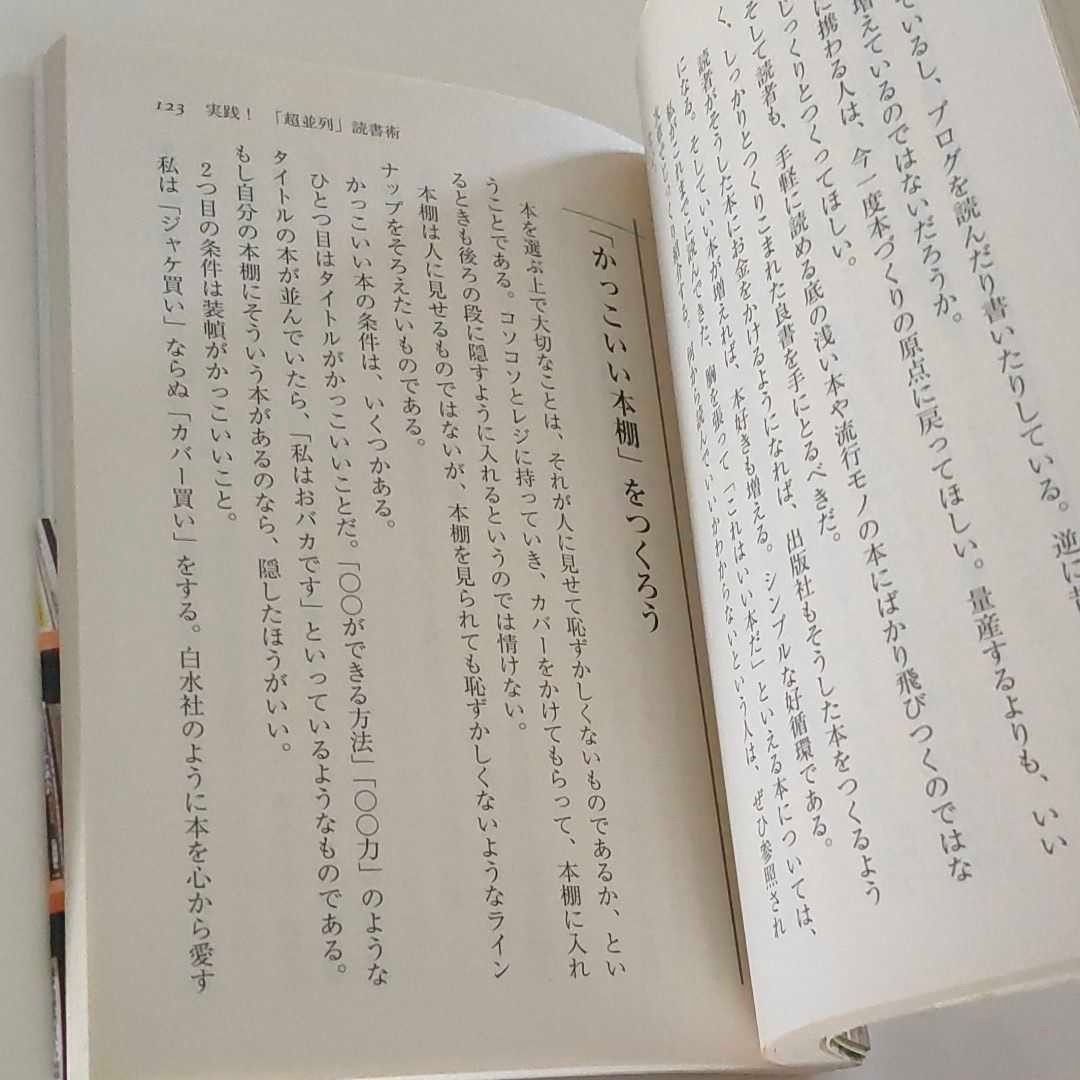 ているし、ブログを読んだり書いたりしている。逆に
増えているのではないだろうか。
に携わる人は、今一度本づくりの原点に戻ってほしい。量産するよりも、いい
じっくりとつくってほしい。
そして読者も、手軽に読める底の浅い本や流行モノの本にばかり飛びつくのではな
く、しっかりとつくりこまれた良書を手にとるべきだ。
読者がそうした本にお金をかけるようになれば、出版社もそうした本をつくるよう
になる。そしていい本が増えれば、本好きも増える。シンプルな好循環である。
私がこれまでに読んできた、胸を張って「これはいい本だ」といえる本については、
紹介する。何から読んでいいかわからないという人は、ぜひ参照され
123 実践！ 「超並列」読書術
「かっこいい本棚」をつくろう
本を選ぶ上で大切なことは、それが人に見せて恥ずかしくないものであるか、とい
うことである。コソコソとレジに持っていき、カバーをかけてもらって、本棚に入れ
るときも後ろの段に隠すように入れるというのでは情けない。
本棚は人に見せるものではないが、本棚を見られても恥ずかしくないようなライン
ナップをそろえたいものである。
かっこいい本の条件は、いくつかある。
ひとつ目はタイトルがかっこいいことだ。「〇〇ができる方法」「〇〇力」のような
タイトルの本が並んでいたら、「私はおバカです」といっているようなものである。
もし自分の本棚にそういう本があるのなら、隠したほうがいい。
2つ目の条件は装幀がかっこいいこと。
私は「ジャケ買い」ならぬ「カバー買い」をする。白水社のように本を心から愛す